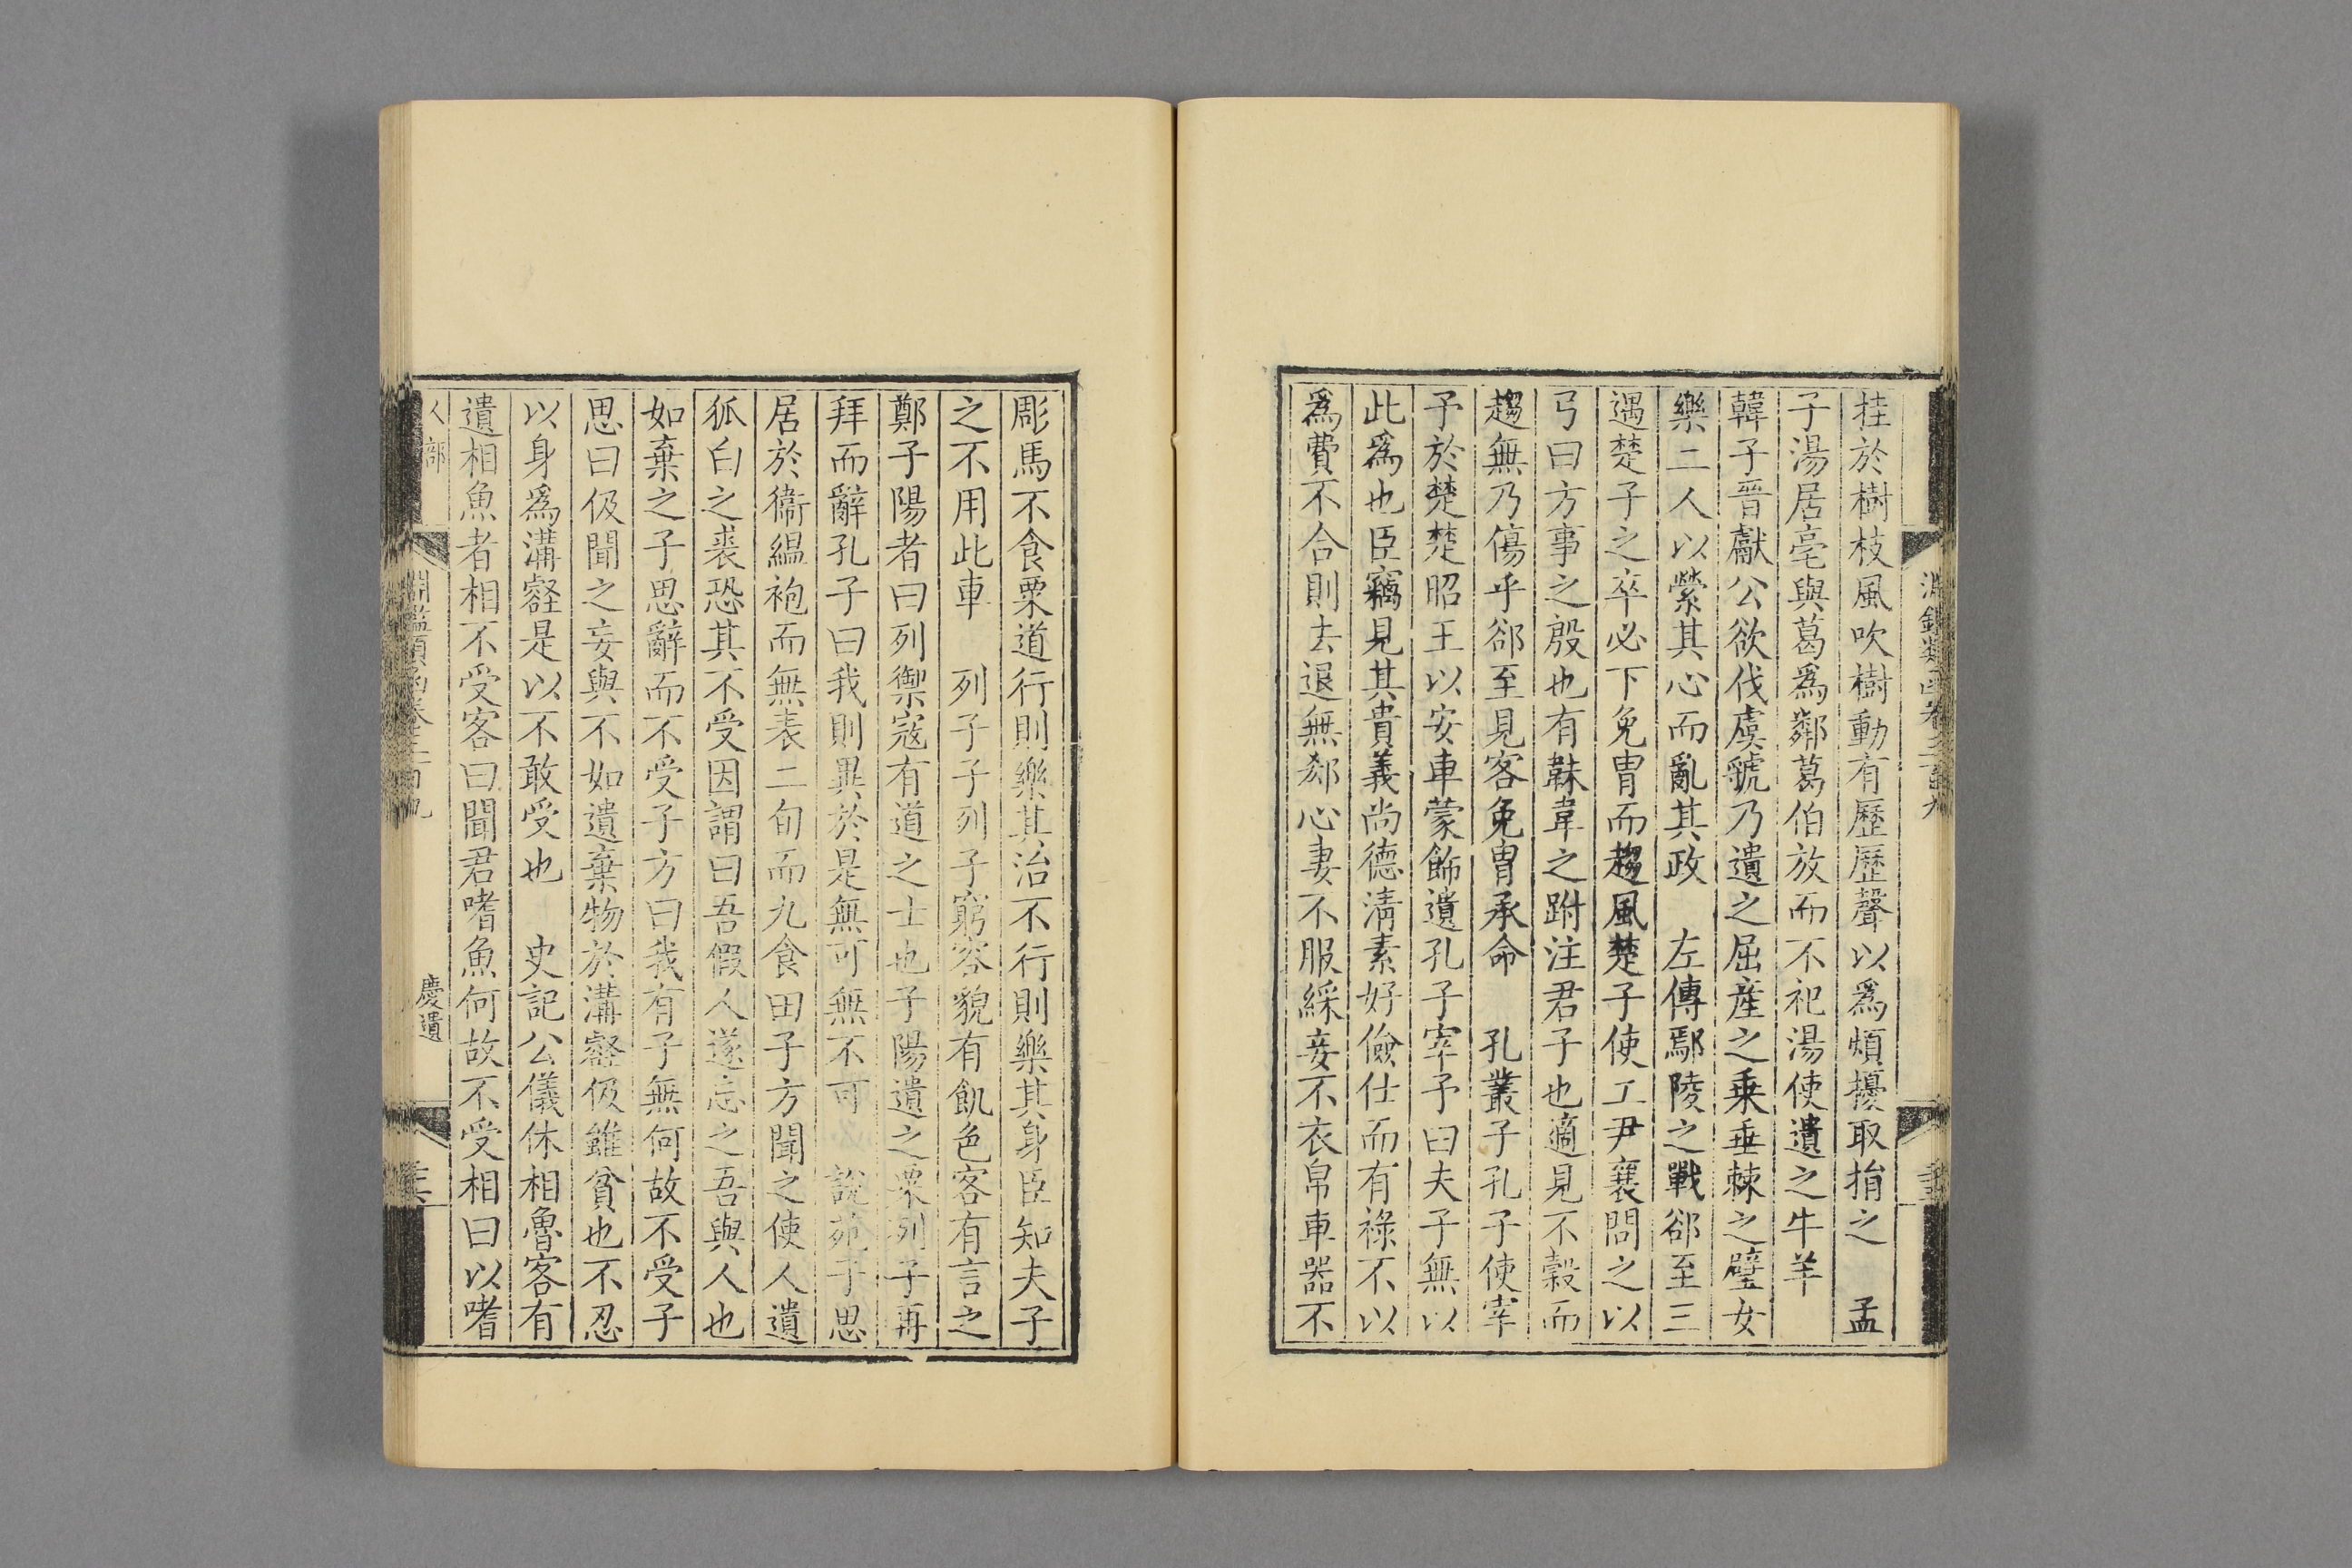 桂於樹枝風吹樹動有歷歷聲以爲煩擾取捐之　孟
子湯居亳與葛爲鄰葛伯放而不祀湯使遺之牛羊
韓子晉獻公欲伐虞虢乃遺之屈產之乗垂棘之璧女
樂二人以縈其心而亂其政　左傳鄢陵之戰郤至三
遇楚子之卒必下免胄而趨風楚子使工尹襄問之以
弓曰方事之殷也有韎韋之跗注君子也適見不穀而
趨無乃傷乎郤至見客免胄承命　孔叢子孔子使宰
予於楚楚昭王以安車蒙飾遺孔子宰予曰夫子無以
此爲也臣竊見其貴義尚德淸素好儉仕而有祿不以
爲費不合則去退無郄心妻不服綵妾不衣帛車器不
彫馬不食粟道行則樂其治不行則樂其身臣知夫子
之不用此車　列子子列子窮容貌有飢色客有言之
鄭子陽者曰列禦寇有道之士也子陽遺之粟列子再
拜而辭孔子曰我則異於是無可無不可　說苑子思
居於衞縕袍而無表二旬而九食田子方聞之使人遺
狐白之裘恐其不受因謂曰吾假人遂忘之吾與人也
如棄之子思辭而不受子方曰我有子無何故不受子
思曰伋聞之妄與不如遺棄物於溝壑伋雖貧也不忍
以身爲溝壑是以不敢受也　史記公儀休相魯客有
遺相魚者相不受客曰聞君嗜魚何故不受相曰以嗜
人部
淵鑑類函卷三百九
慶遺